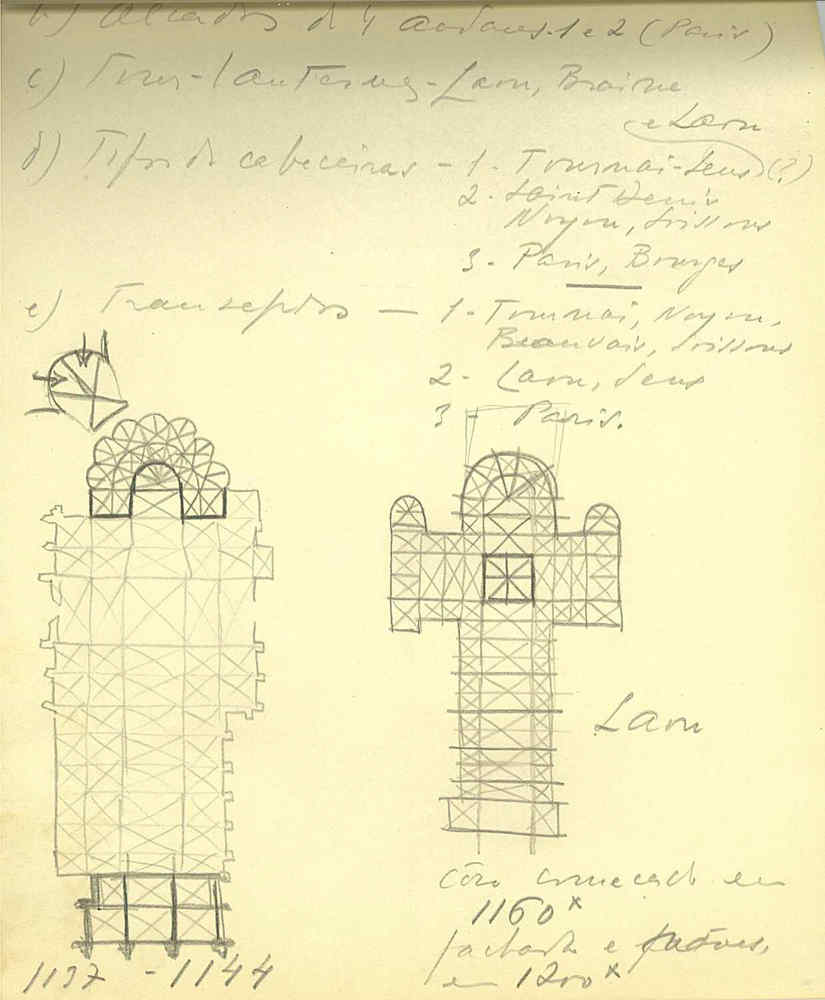 b) Alçados de 4 andares. 1 e 2 (Paris)
c) Tour-lanternes - Laon, Braine
e Laon
d) Tipos de cabeceiras - 1. Tournai-Sens (?)
2. Saint Denis
Noyon, Soissons
3. Paris, Bourges
e) Transeptos - 1. Tournai, Noyon,
Beauvais, Soissons
2- Laon, Sens
3 - Paris.
Laon
côro começado em
1160 x
fachada e
em 1200 x
1137 - 1144